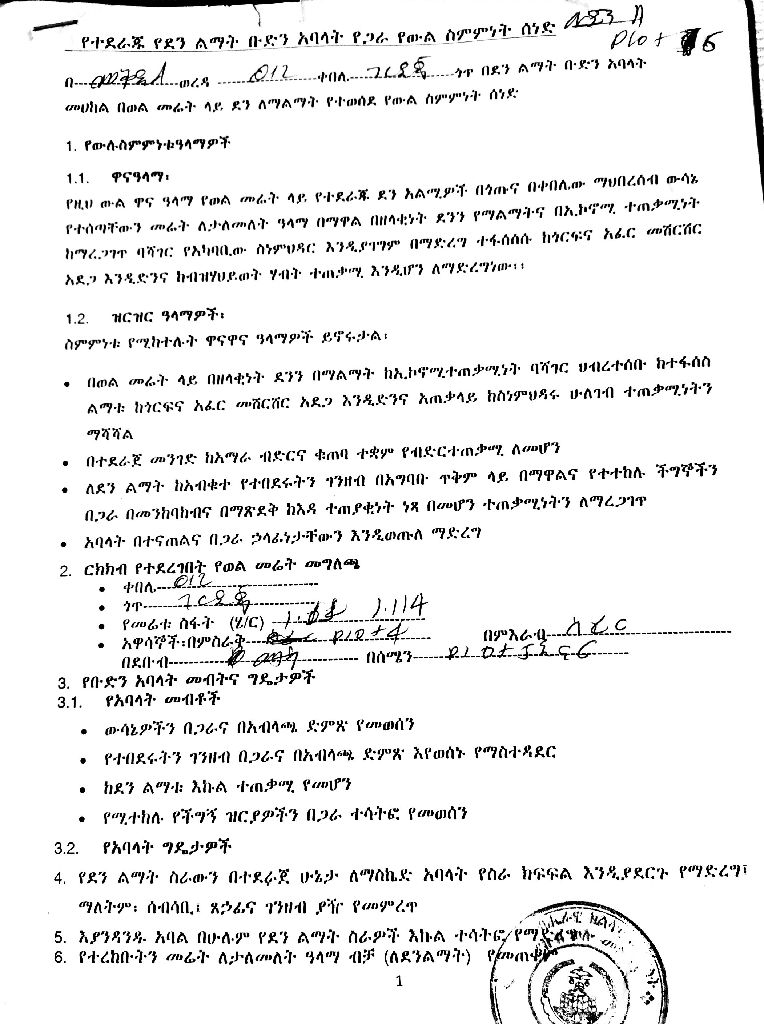 የተደራጁ የደን ልማት ቡድን አባላት የጋራ የውል ስምምነት ሰነድ
Plot 6
በ ወረዳ 012 ቀበሌ ጎጥ በደን ልማት ቡድን አባላት
መሀከል በወል መሬት ላይ ደን ለማልማት የተወሰደ የውል ስምምነት ሰነድ
1. የውሉስምምነቱዓላማዎች
1.1. ዋናዓላማ፡
የዚህ ውል ዋና ዓላማ የወል መሬት ላይ የተደራጁ ደን አልሚዎች በጎጡና በቀበሌው ማህበረሰብ ውሳኔ
የተሰጣቸውን መሬት ለታለመለት ዓላማ በማዋል በዘላቂነት ደንን የማልማትና በኢኮኖሚ ተጠቃሚነት
ከማረጋገጥ ባሻገር የአካባቢው ስነምህዳር እንዲያገግም በማድረግ ተፋሰሰሱ ከጎርፍና አፈር መሸርሸር
አደጋ እንዲድንና ከብዝሃህይወት ሃብት ተጠቃሚ እንዲሆን ለማድረግነው፡፡
1.2. ዝርዝር ዓላማዎች፡
ስምምነቱ የሚከተሉት ዋናዋና ዓላማዎች ይኖሩታል፡
• በወል መሬት ላይ በዘላቂነት ደንን በማልማት ከኢኮኖሚተጠቃሚነት ባሻገር ህብረተሰቡ ከተፋሰስ
ልማቱ ከጎርፍና አፈር መሸርሸር አደጋ እንዲድንና አጠቃላይ ከስነምህዳሩ ሁለገብ ተጠቃሚነትን
ማሻሻል
• በተደራጀ መንገድ ከአማራ ብድርና ቁጠባ ተቋም የብድርተጠቃሚ ለመሆን
• ለደን ልማት ከአብቁተ የተበደሩትን ገንዘብ በአግባቡ ጥቅም ላይ በማዋልና የተተከሉ ችግኞችን
በጋራ በመንከባከብና በማጽደቅ ከእዳ ተጠያቂነት ነጻ በመሆን ተጠቃሚነትን ለማረጋገጥ
• አባላት በተናጠልና በጋራ ኃላፊነታቸውን እንዲወጡለ ማድረግ
2. ርክክብ የተደረገበት የወል መሬት መግለጫ
• ቀበሌ 012
• ጎጥ
• የመሬቱ ስፋት (ሄ/ር) 1.114
• አዋሳኞች፡በምስራቅ በምእራብ
በደቡብ በሰሜን
3. የቡድን አባላት መብትና ግዴታዎች
3.1. የአባላት መብቶች
• ውሳኔዎችን በጋራና በአብላጫ ድምጽ የመወሰን
• የተበደሩትን ገንዘብ በጋራና በአብላጫ ድምጽ እየወሰኑ የማስተዳደር
• ከደን ልማቱ እኩል ተጠቃሚ የመሆን
• የሚተከሉ የችግኝ ዝርያዎችን በጋራ ተሳትፎ የመወሰን
3.2. የአባላት ግዴታዎች
4. የደን ልማት ስራውን በተደራጀ ሁኔታ ለማስኬድ አባላት የስራ ክፍፍል እንዲያደርጉ የማድረግ፣
ማለትም፡ ሰብሳቢ፣ ጸኃፊና ገንዘብ ያዥ የመምረጥ
5. እያንዳንዱ አባል በሁሉም የደን ልማት ስራዎች እኩል ተሳትፎ
6. የተረከቡትን መሬት ለታለመለት ዓላማ ብቻ (ለደንልማት) የመጠቀም
1